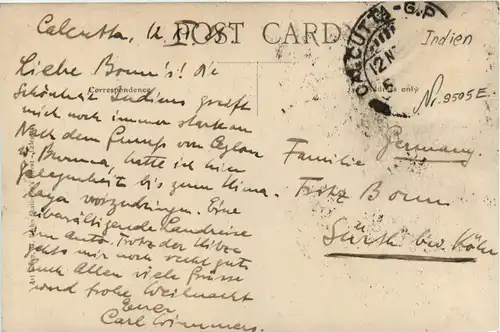 Calcutta,
POST CARD
CALCUTTA-G.P.
12
Indien
Correspondence
only
Nr. 9505 E.
Liebe Bonn's! Die
Schönheit Indiens greift
mich noch immer stark an
Nach dem Sumpf von Ceylon
u Burma, hatte ich hier
Gelegenheit bis zum Hima-
laya vorzudringen. Eine
überwältigende Landreise
im Auto. Trotz der Hitze
geht's mir noch recht gut
Euch Allen viele Grüsse
und frohe Weihnacht
Euer
Carl Wimmers.
Germany.
Familie
Fritz Bonn
Sürth bei Köln